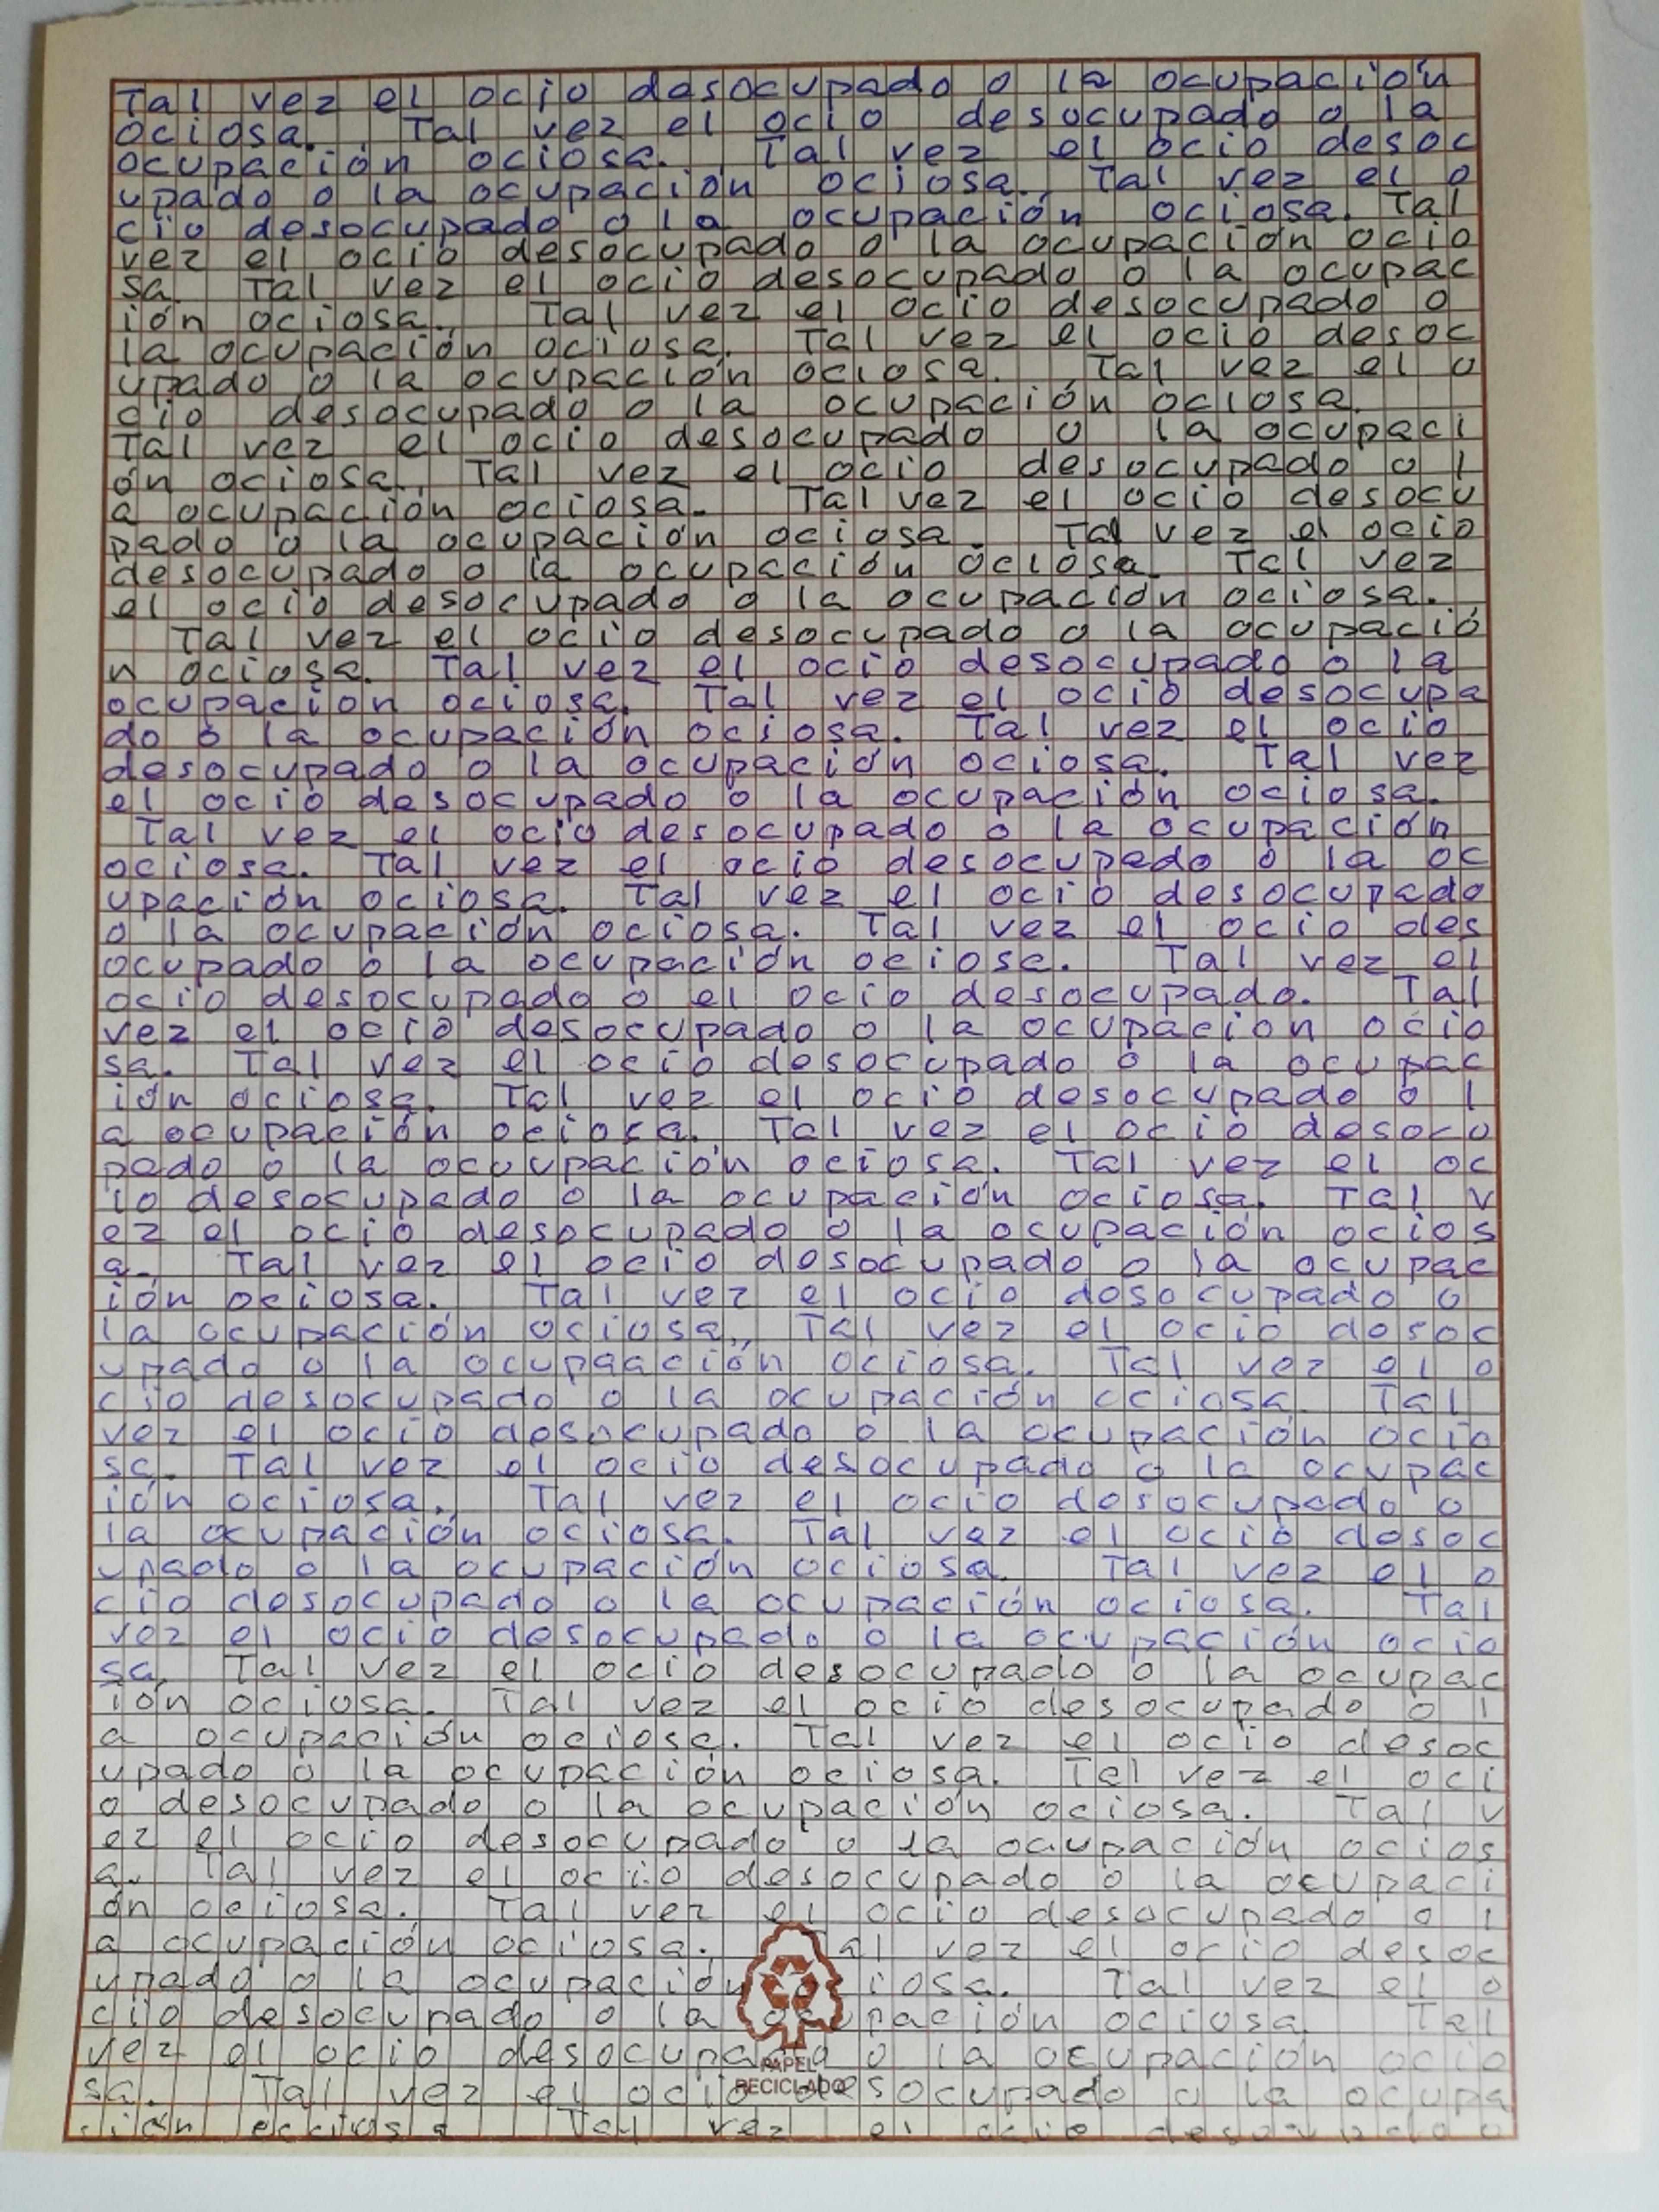 Tal vez el ocio desocupado o la ocupación
ociosa. Tal vez el ocio desocupado o la
ocupación ociosa. Tal vez el ocio desoc
upado o la ocupación ociosa. Tal vez el o
cio desocupado o la ocupación ociosa. Tal
vez el ocio desocupado o la ocupación ocio
sa. Tal vez el ocio desocupado o la ocupac
ión ociosa. Tal vez el ocio desocupado o
la ocupación ociosa. Tal vez el ocio desoc
upado o la ocupación ociosa. Tal vez el o
cio desocupado o la ocupación ociosa.
Tal vez el ocio desocupado o la ocupaci
ón ociosa. Tal vez el ocio desocupado o l
a ocupación ociosa. Tal vez el ocio desocu
pado o la ocupación ociosa. Tal vez el ocio
desocupado o la ocupación ociosa. Tal vez
el ocio desocupado o la ocupación ociosa.
Tal vez el ocio desocupado o la ocupació
n ociosa. Tal vez el ocio desocupado o la
ocupación ociosa. Tal vez el ocio desocupa
do o la ocupación ociosa. Tal vez el ocio
desocupado o la ocupación ociosa. Tal vez
el ocio desocupado o la ocupación ociosa.
Tal vez el ocio desocupado o la ocupación
ociosa. Tal vez el ocio desocupado o la oc
upación ociosa. Tal vez el ocio desocupado
o la ocupación ociosa. Tal vez el ocio des
ocupado o la ocupación ociosa. Tal vez el
ocio desocupado o el ocio desocupado. Tal
vez el ocio desocupado o la ocupación ocio
sa. Tal vez el ocio desocupado o la ocupac
ión ociosa. Tal vez el ocio desocupado o l
a ocupación ociosa. Tal vez el ocio desocu
pado o la ocuupación ociosa. Tal vez el oc
io desocupado o la ocupación ociosa. Tal v
ez el ocio desocupado o la ocupación ocios
a. Tal vez el ocio desocupado o la ocupac
ión ociosa. Tal vez el ocio desocupado o
la ocupación ociosa. Tal vez el ocio desoc
upado o la ocupaación ociosa. Tal vez el o
cio desocupado o la ocupación ociosa. Tal
vez el ocio desocupado o la ocupación ocio
sa. Tal vez el ocio desocupado o la ocupac
ión ociosa. Tal vez el ocio desocupado o
la ocupación ociosa. Tal vez el ocio desoc
upado o la ocupación ociosa. Tal vez el o
cio desocupado o la ocupación ociosa. Tal
vez el ocio desocupado o la ocupación ocio
sa. Tal vez el ocio desocupado o la ocupac
ión ociosa. Tal vez el ocio desocupado o l
a ocupación ociosa. Tal vez el ocio desoc
upado o la ocupación ociosa. Tal vez el oci
o desocupado o la ocupación ociosa. Tal v
ez el ocio desocupado o la ocupación ocios
a. Tal vez el ocio desocupado o la ocupaci
ón ociosa. Tal vez el ocio desocupado o l
a ocupación ociosa. Tal vez el ocio desoc
upado o la ocupación ociosa. Tal vez el o
cio desocupado o la ocupación ociosa. Tal
vez el ocio desocupado o la ocupación ocio
PAPEL
RECICLADO
sa. Tal vez el ocio desocupado o la ocupa
ción Tal vez el ocio desocupado o